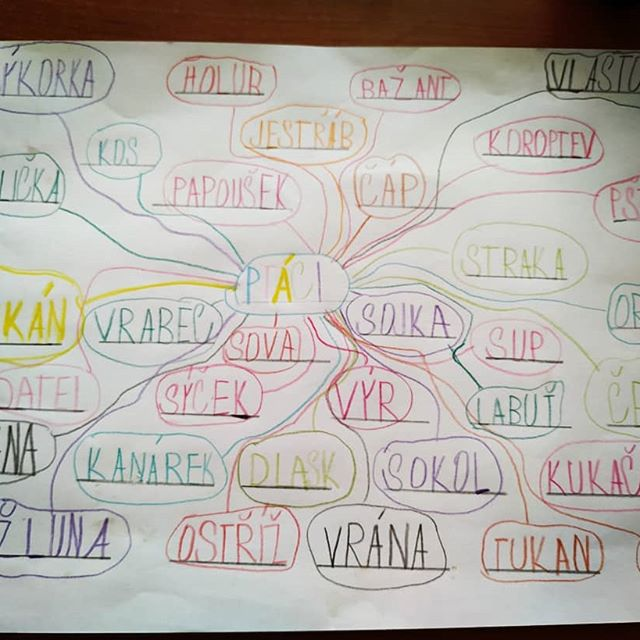 ÝKORKA
HOLUB
BAŽANT
VLASTO
JESTŘÁB
KOROPTEV
KOS
LIČKA
PAPOUŠEK
ČÁP
PŠ
STRAKA
PTÁCI
KÁN
VRABEC
SOJKA
OR
SOVA
SUP
DATEL
SÝČEK
VÝR
LABUŤ
ČE
NA
KANÁREK
DLASK
SOKOL
KUKAČ
ŽLUNA
OSTŘÍŽ
VRÁNA
TUKAN